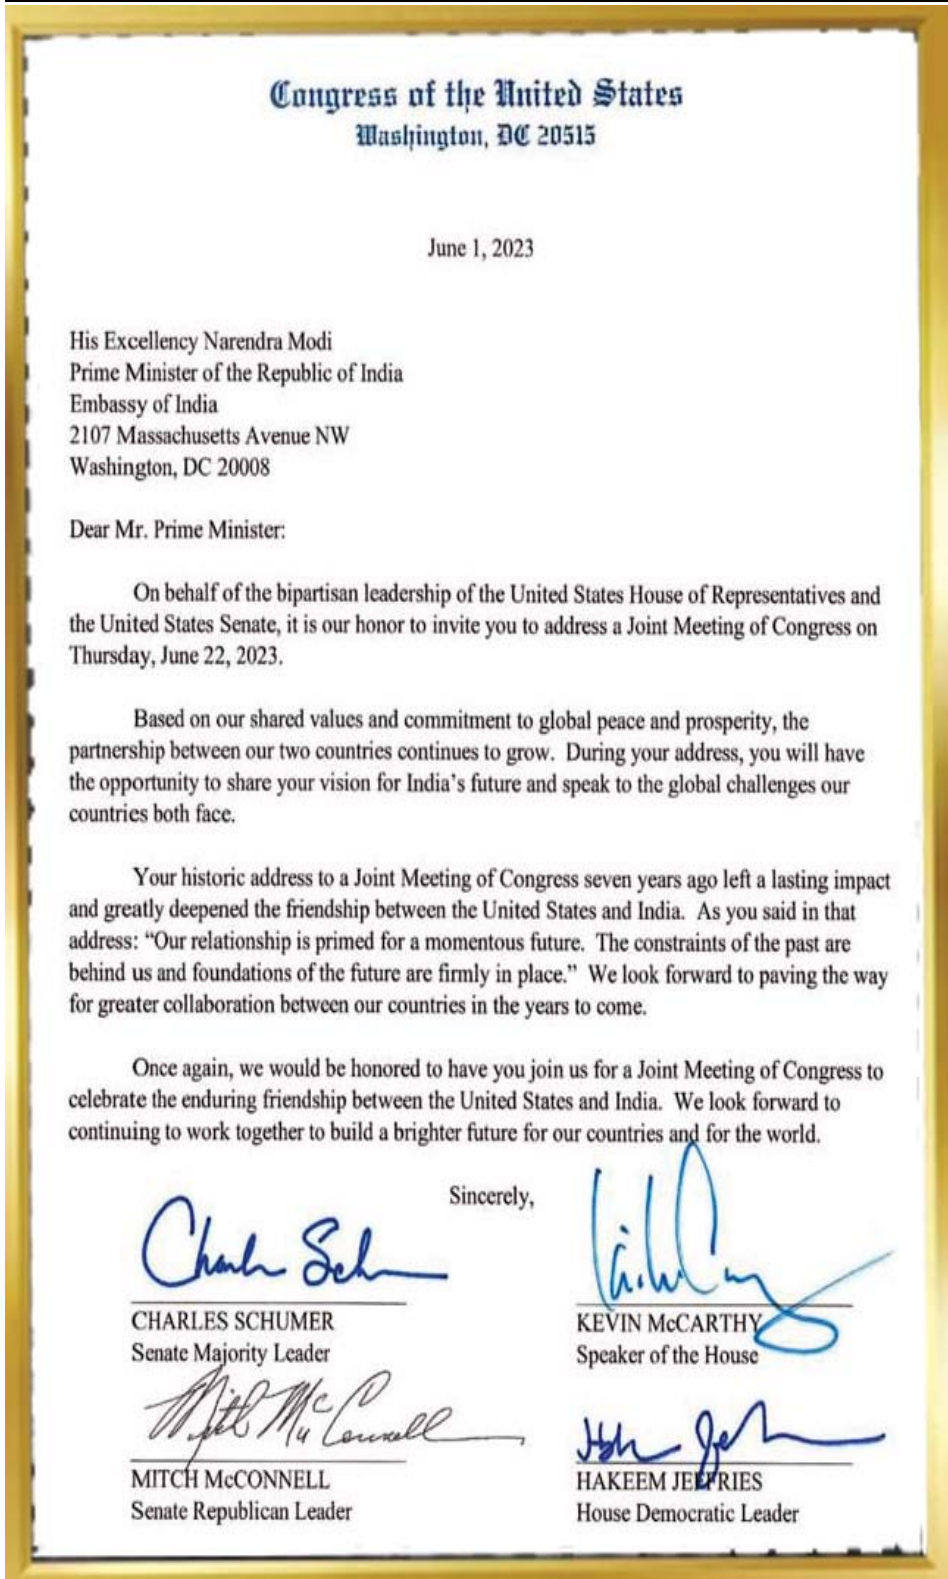 Congress of the United States
Washington, DC 20515
June 1, 2023
His Excellency Narendra Modi
Prime Minister of the Republic of India
Embassy of India
2107 Massachusetts Avenue NW
Washington, DC 20008
Dear Mr. Prime Minister:
On behalf of the bipartisan leadership of the United States House of Representatives and
the United States Senate, it is our honor to invite you to address a Joint Meeting of Congress on
Thursday, June 22, 2023.
Based on our shared values and commitment to global peace and prosperity, the
partnership between our two countries continues to grow. During your address, you will have
the opportunity to share your vision for India's future and speak to the global challenges our
countries both face.
Your historic address to a Joint Meeting of Congress seven years ago left a lasting impact
and greatly deepened the friendship between the United States and India. As you said in that
address: “Our relationship is primed for a momentous future. The constraints of the past are
behind us and foundations of the future are firmly in place.” We look forward to paving the way
for greater collaboration between our countries in the years to come.
Once again, we would be honored to have you join us for a Joint Meeting of Congress to
celebrate the enduring friendship between the United States and India. We look forward to
continuing to work together to build a brighter future for our countries and for the world.
Sincerely,
CHARLES SCHUMER
Senate Majority Leader
KEVIN McCARTHY
Speaker of the House
Mitch McConnell
MITCH McCONNELL
Senate Republican Leader
HAKEEM JEFFRIES
House Democratic Leader